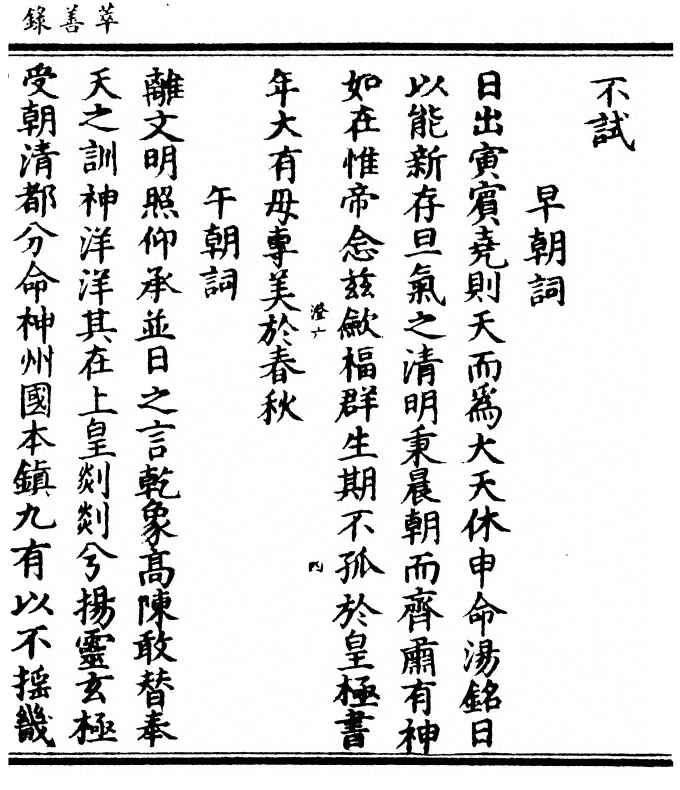 萃善錄
不試
早朝詞
日出寅賓堯則天而爲大天休申命湯銘日
以能新存旦氣之清明秉晨朝而齊肅有神
如在惟帝念玆斂福群生期不孤於皇極書
年大有毋專美於春秋
午朝詞
離文明照仰承並日之言乾象高陳敢替奉
天之訓神洋洋其在上皇剡剡兮揚靈玄極
受朝清都分命神州國本鎮九有以不搖畿